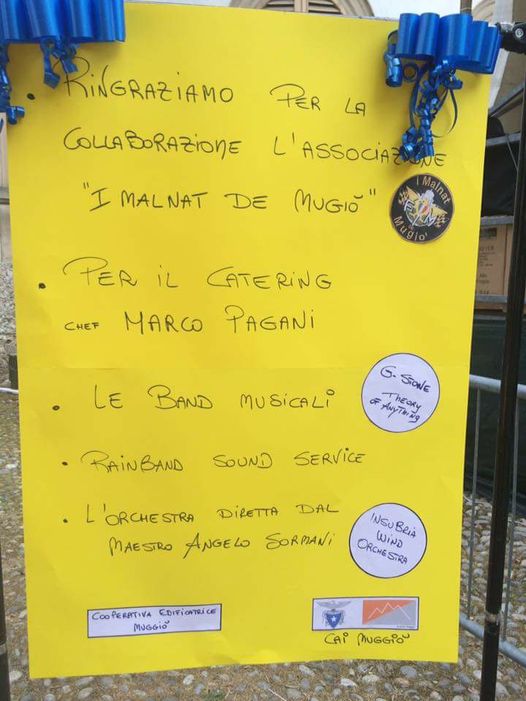 • RINGRAZIAMO PER LA
COLLABORAZIONE L'ASSOCIAZIONE
"I MALNAT DE MUGIÒ"
I Malnat
de
Mugiò
• PER IL CATERING
CHEF MARCO PAGANI
• LE BAND MUSICALI
G. STONE
THEORY
OF ANYTHING
• RAINBAND SOUND SERVICE
• L'ORCHESTRA DIRETTA DAL
MAESTRO ANGELO SORMANI
INSUBRIA
WIND
ORCHESTRA
COOPERATIVA EDIFICATRICE
MUGGIÒ
CAI MUGGIÒ